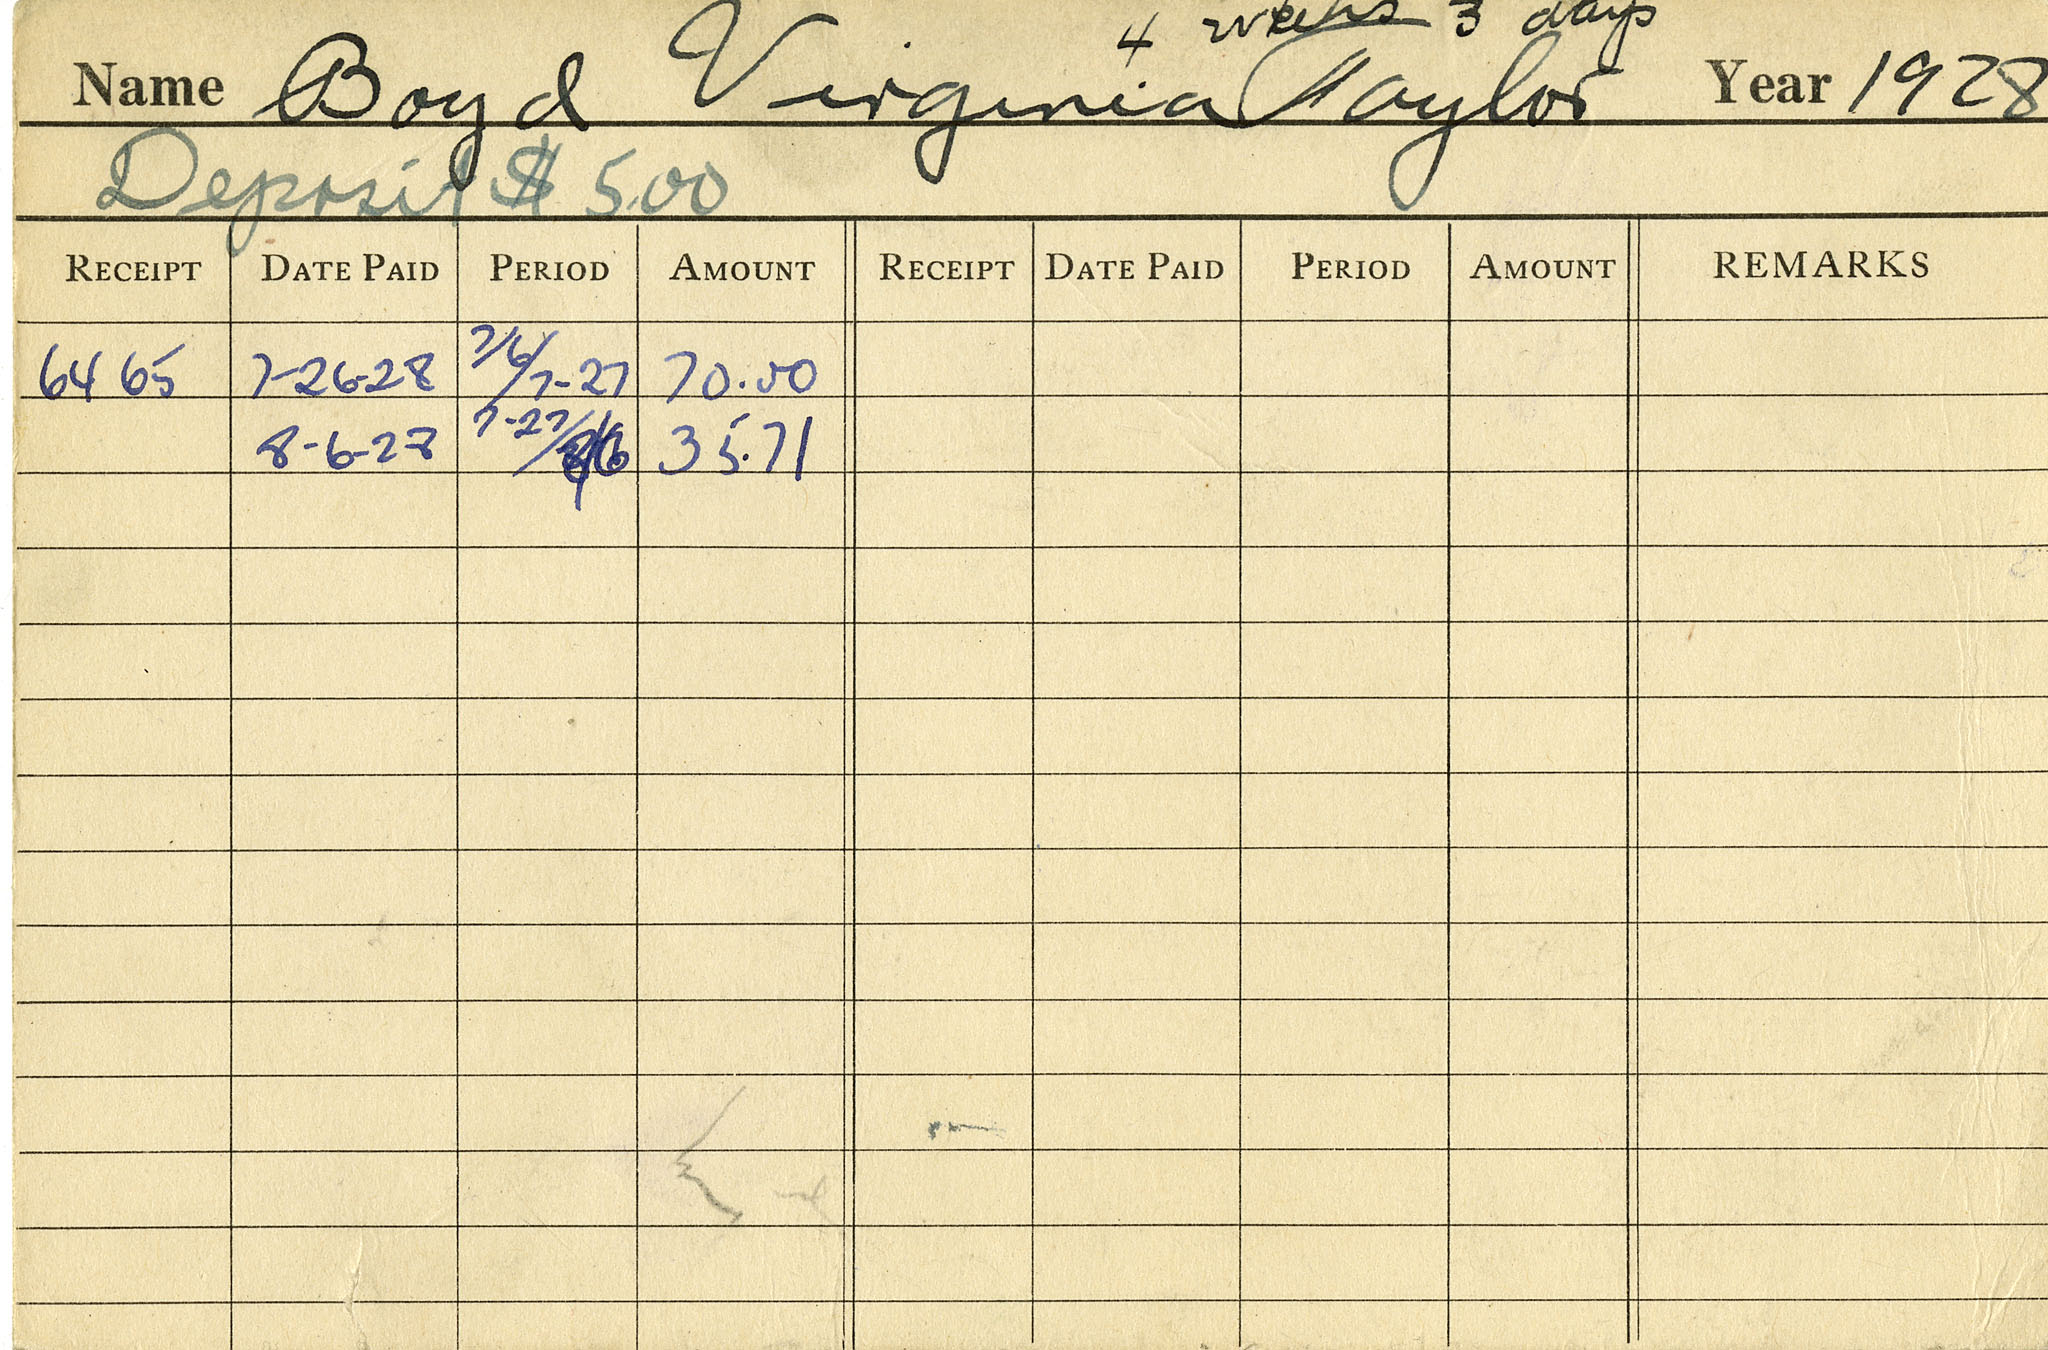 4 weeks 3 days
Name Boyd Virginia Taylor Year 1928
Deposit $5.00
RECEIPT DATE PAID PERIOD AMOUNT RECEIPT DATE PAID PERIOD AMOUNT REMARKS
6465 7-26-28 7/6/7-27 70.00
8-6-28 7-27/8/6 35.71